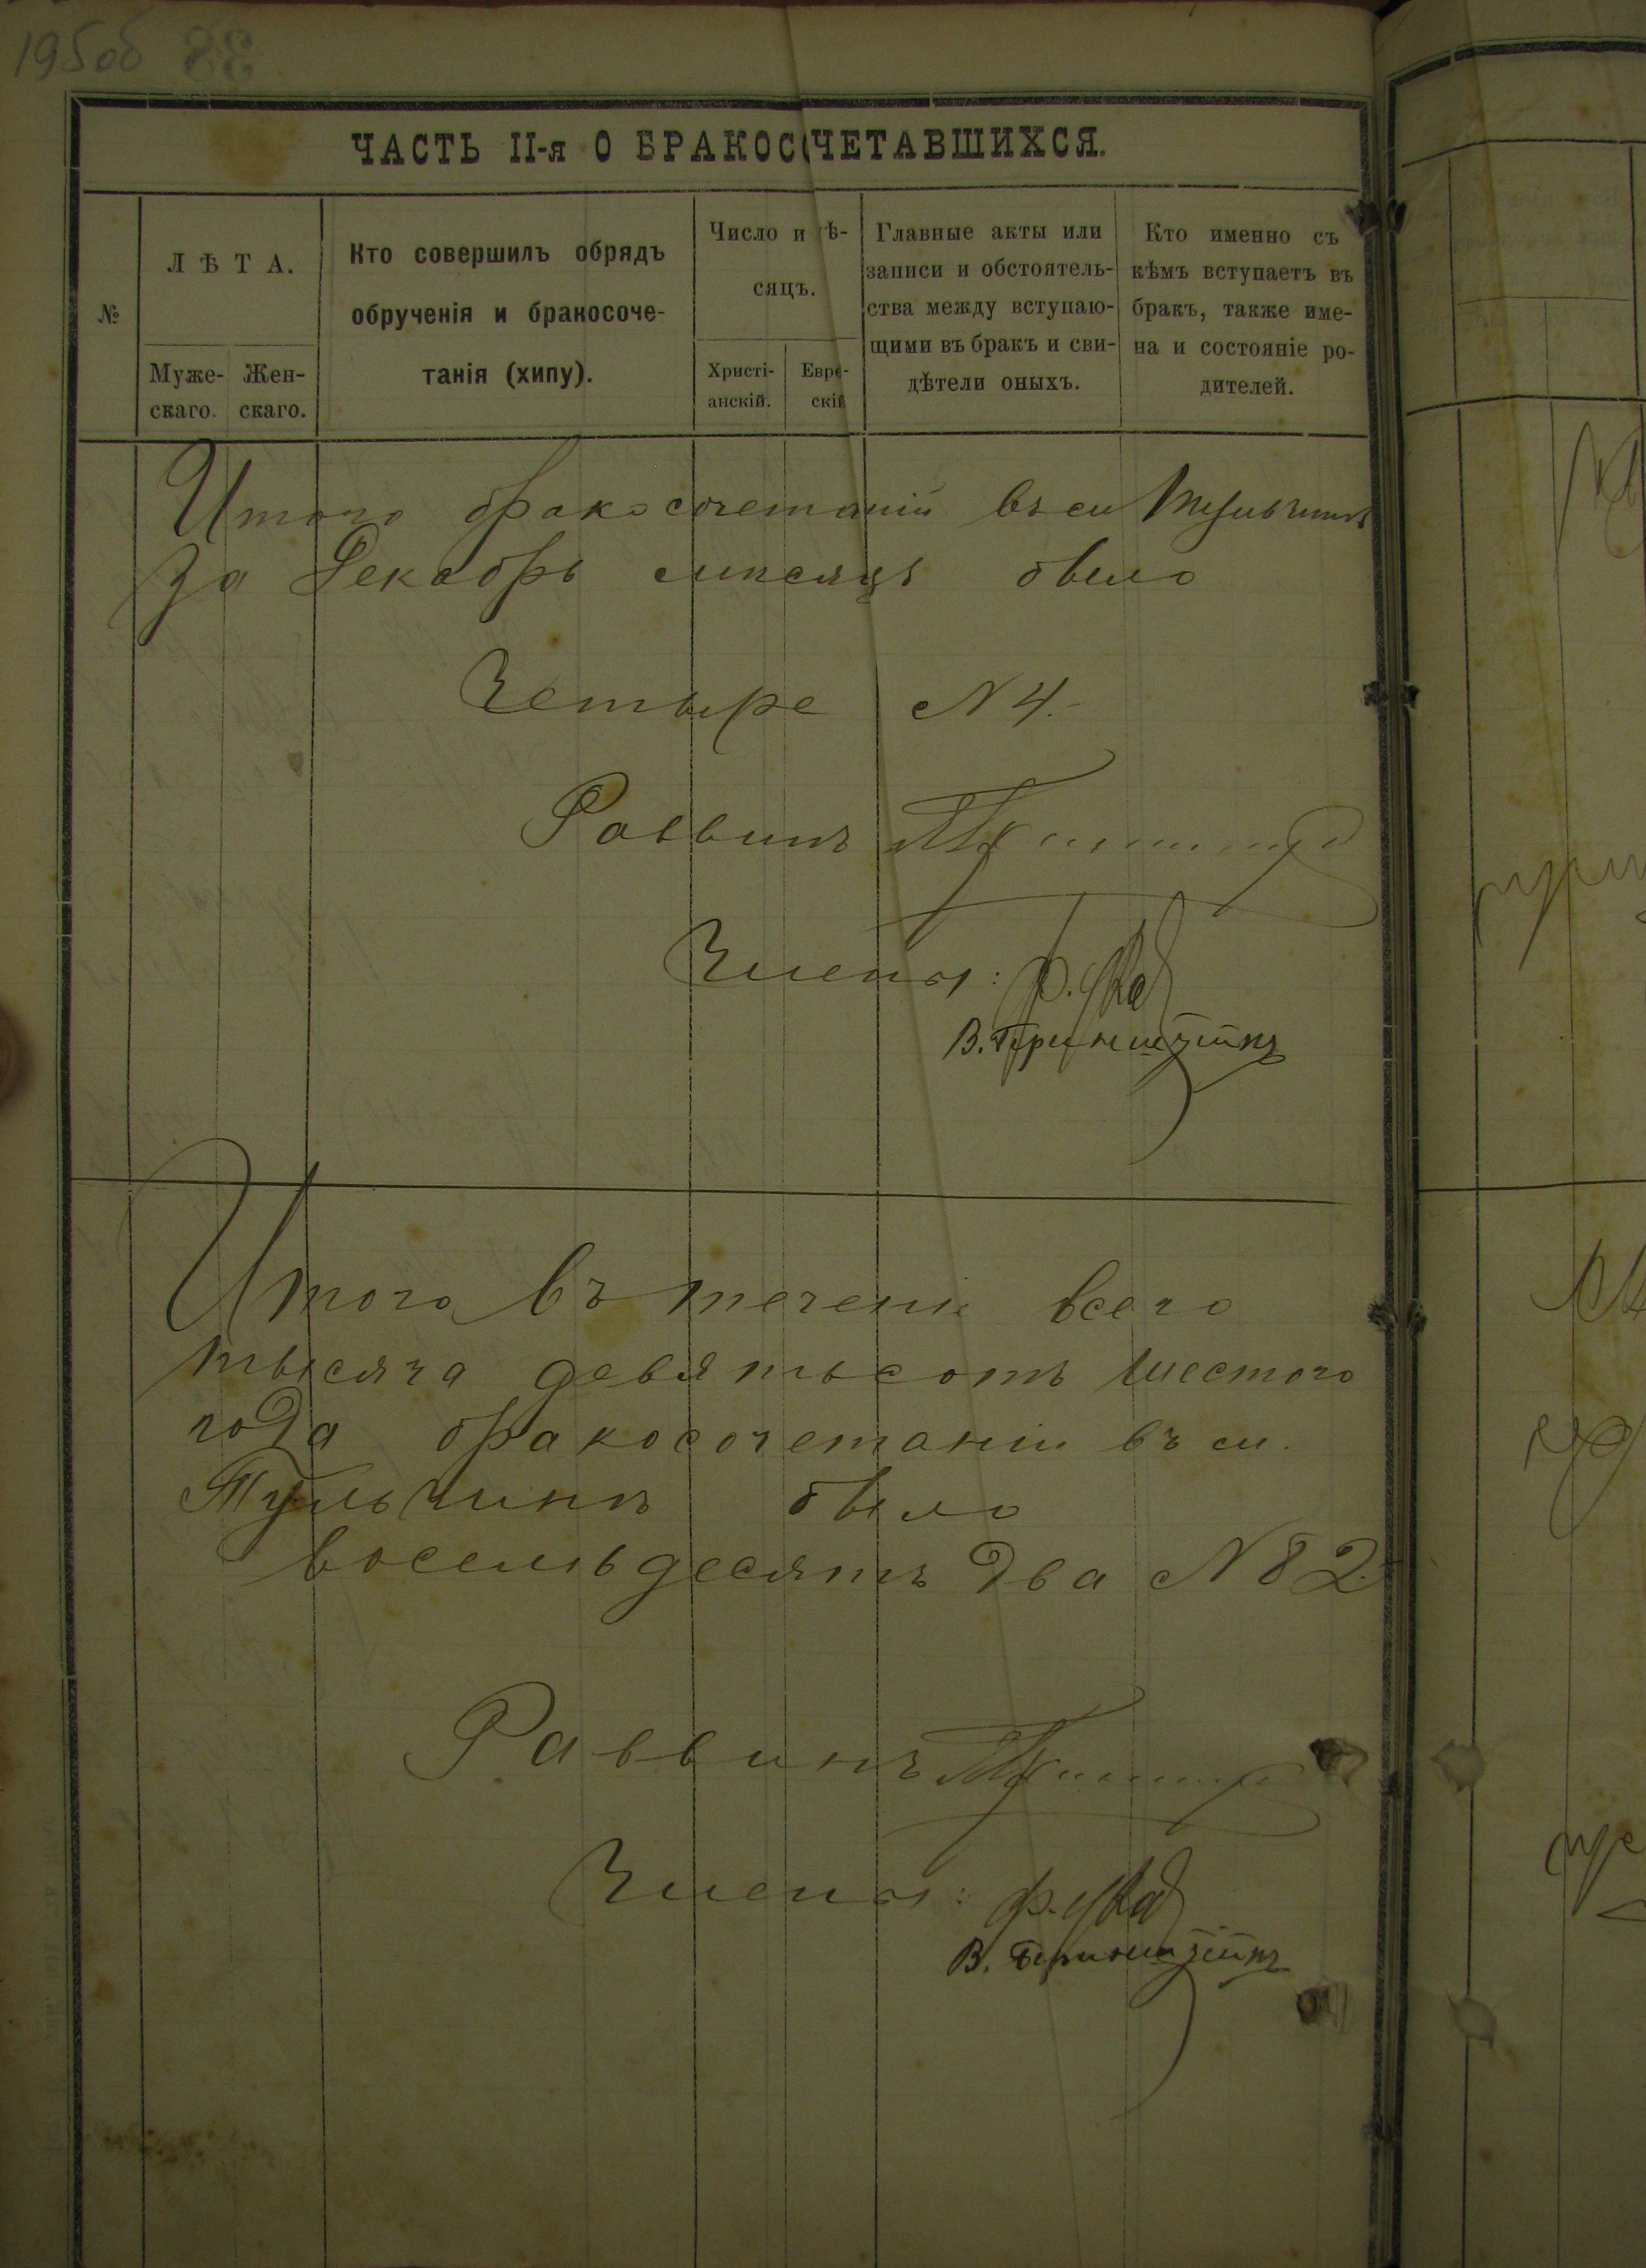 195об 88
ЧАСТЬ II-я О БРАКОСОЧЕТАВШИХСЯ.
№
ЛѢТА.
Муже-
скаго.
Жен-
скаго.
Кто совершилъ обрядъ
обрученія и бракосоче-
танія (хипу).
Число и мѣ-
сяцъ.
Христі-
анскій.
Евре-
скій
Главные акты или
записи и обстоятель-
ства между вступаю-
щими въ бракъ и сви-
дѣтели оныхъ.
Кто именно съ
кѣмъ вступаетъ въ
бракъ, также име-
на и состояніе ро-
дителей.
Итого бракосочетаній въ м Тульчинѣ
за Декабрь мѣсяцъ было
Четыре N 4.-
Раввинъ
Члены:
В.
Итого въ теченіи всего
тысяча девятьсотъ шестого
года бракосочетаній въ м.
Тульчинѣ было
восемьдесятъ два N 82
Раввинъ
Члены:
В.